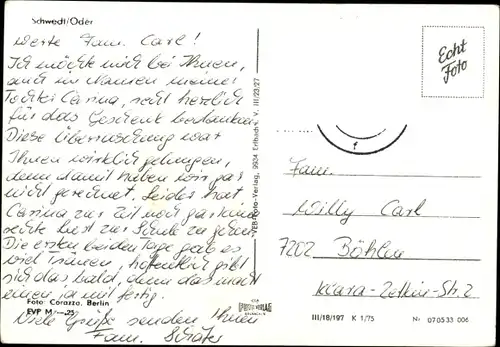 Schwedt/Oder
Werte Fam. Carl!
Ich möchte mich bei Ihnen,
auch im Namen meiner
Tochter Carina, recht herzlich
für das Geschenk bedanken.
Diese Überraschung war
Ihnen wirklich gelungen,
denn damit haben wir gar
nicht gerechnet. Leider hat
Carina zur Zeit noch gar keine
rechte Lust zur Schule zu gehen.
Die ersten beiden Tage gab es
viel Tränen, hoffentlich gibt
sich das bald, denn das macht
einen ja mit fertig.
Foto: Corazza, Berlin
EVP M -,25
Viele Grüße senden Ihnen
Fam.
VEB Foto-Verlag, 9934 Erlbach i. V. III/23/27
Echt
Foto
Fam.
Willy Carl
7202 Böhlen
Klara-Zetkin-Str. 2
III/18/197 K 1/75
Nr 07 05 33 006